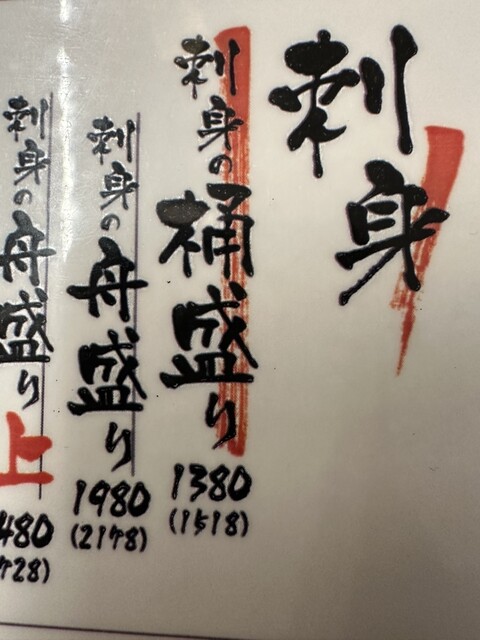 刺身
刺身の桶盛り
1380
(1518)
刺身の舟盛り
1980
(2178)
刺身の舟盛り上
480
28)